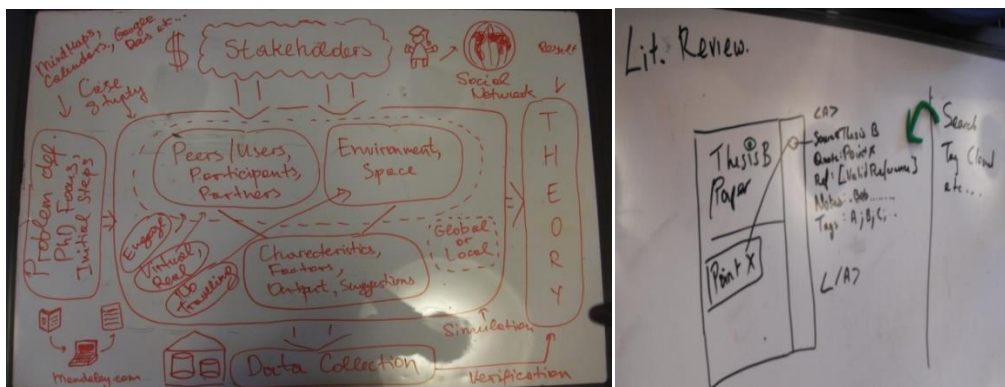 MindMaps,
Calendars, Google
Docs etc...
Case
Study
$
Stakeholders
Social
Network
Result
Problem def.
PhD Focus,
Initial Steps
Peers/Users,
Participants,
Partners
Environment,
Space
THEORY
Engage
Virtual,
Real
No
Traveling
Charecteristics,
Factors,
Output, Suggestions
Global
or
Local
Simulation
Mendeley.com
Data Collection
Verification
Lit. Review.
Thesis B
Paper
Point X
<A>
Source: Thesis B
Quote: Point X
Ref: [Valid Reference]
Notes:
Tags: A; B; C;..
</A>
Search
Tag Cloud
etc...